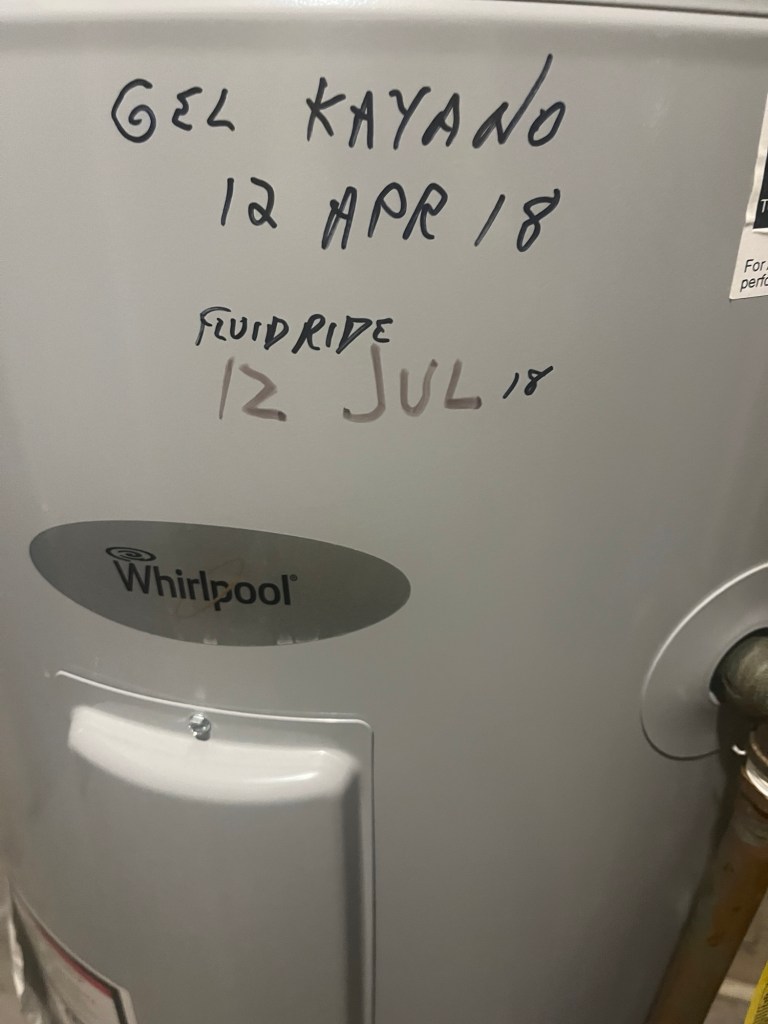 GEL KAYANO
12 APR 18
FLUIDRIDE
12 JUL 18
Whirlpool
For